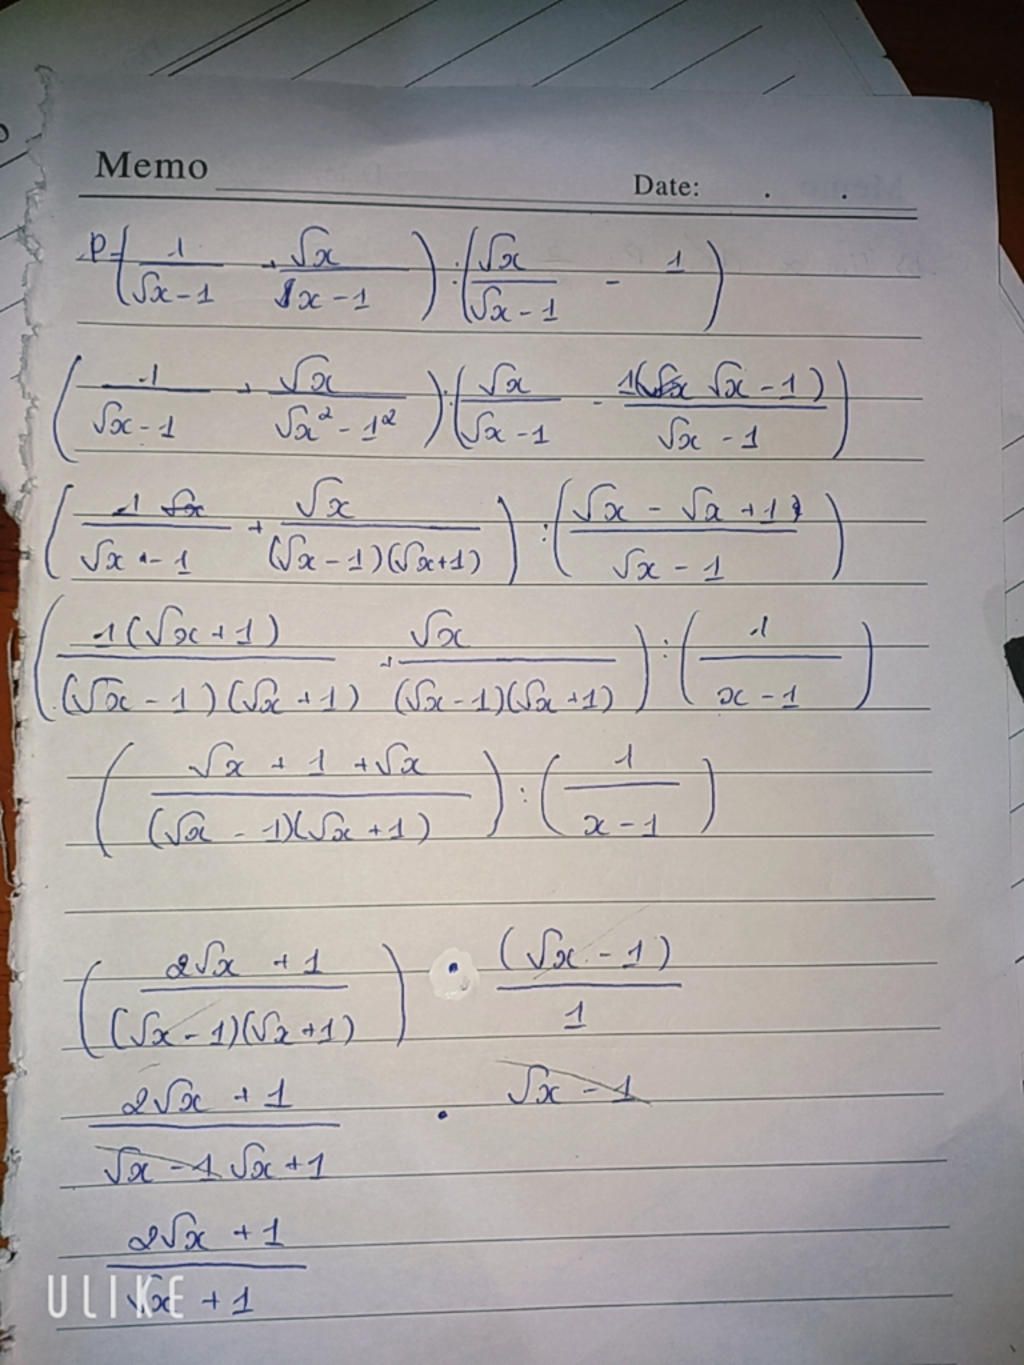 Memo
Date: . .
P = (1/(√x - 1) + √x/(x - 1)) : (√x/(√x - 1) - 1)
(1/(√x - 1) + √x/(√x² - 1²)) : (√x/(√x - 1) - 1(√x - 1)/(√x - 1))
(1/(√x - 1) + √x/((√x - 1)(√x + 1))) : ((√x - √x + 1)/(√x - 1))
(1(√x + 1)/((√x - 1)(√x + 1)) + √x/((√x - 1)(√x + 1))) : (1/(x - 1))
((√x + 1 + √x)/((√x - 1)(√x + 1))) : (1/(x - 1))
((2√x + 1)/((√x - 1)(√x + 1))) . (√x - 1)/1
(2√x + 1)/(√x - 1 √x + 1) . √x - 1
(2√x + 1)/(√x + 1)
ULIKE